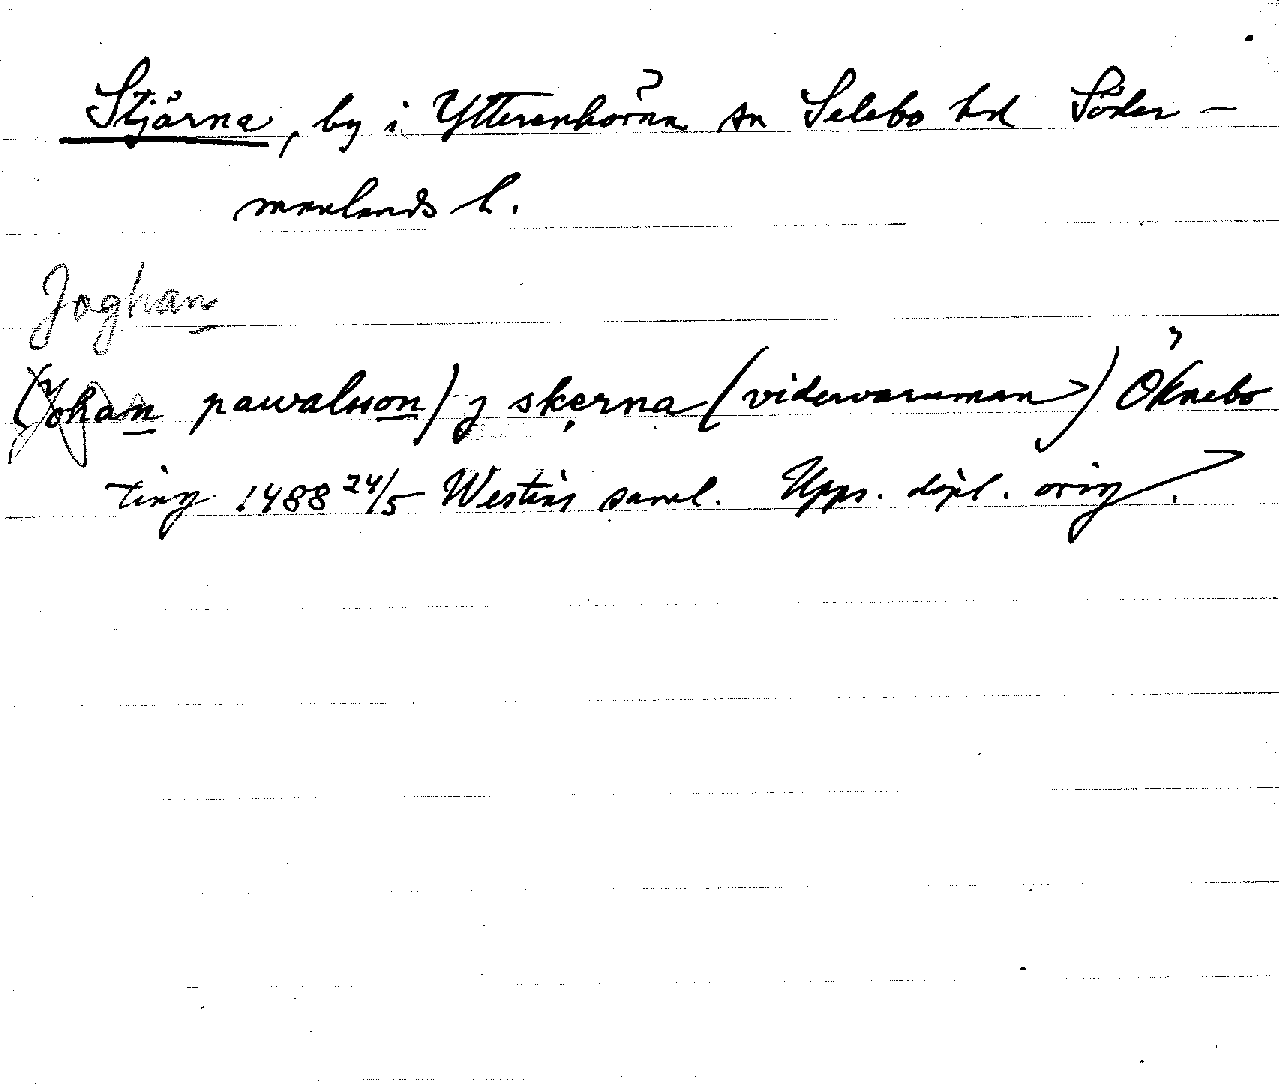 Stjärna, by i Ytterenhörna sn Selebo hd Söder-
manlands l.
Joghan
(Johan pawalsson) j skerna (vidervaruman) Öknebo
ting 1488 24/5 Westins saml. Upps. dipl. orig.